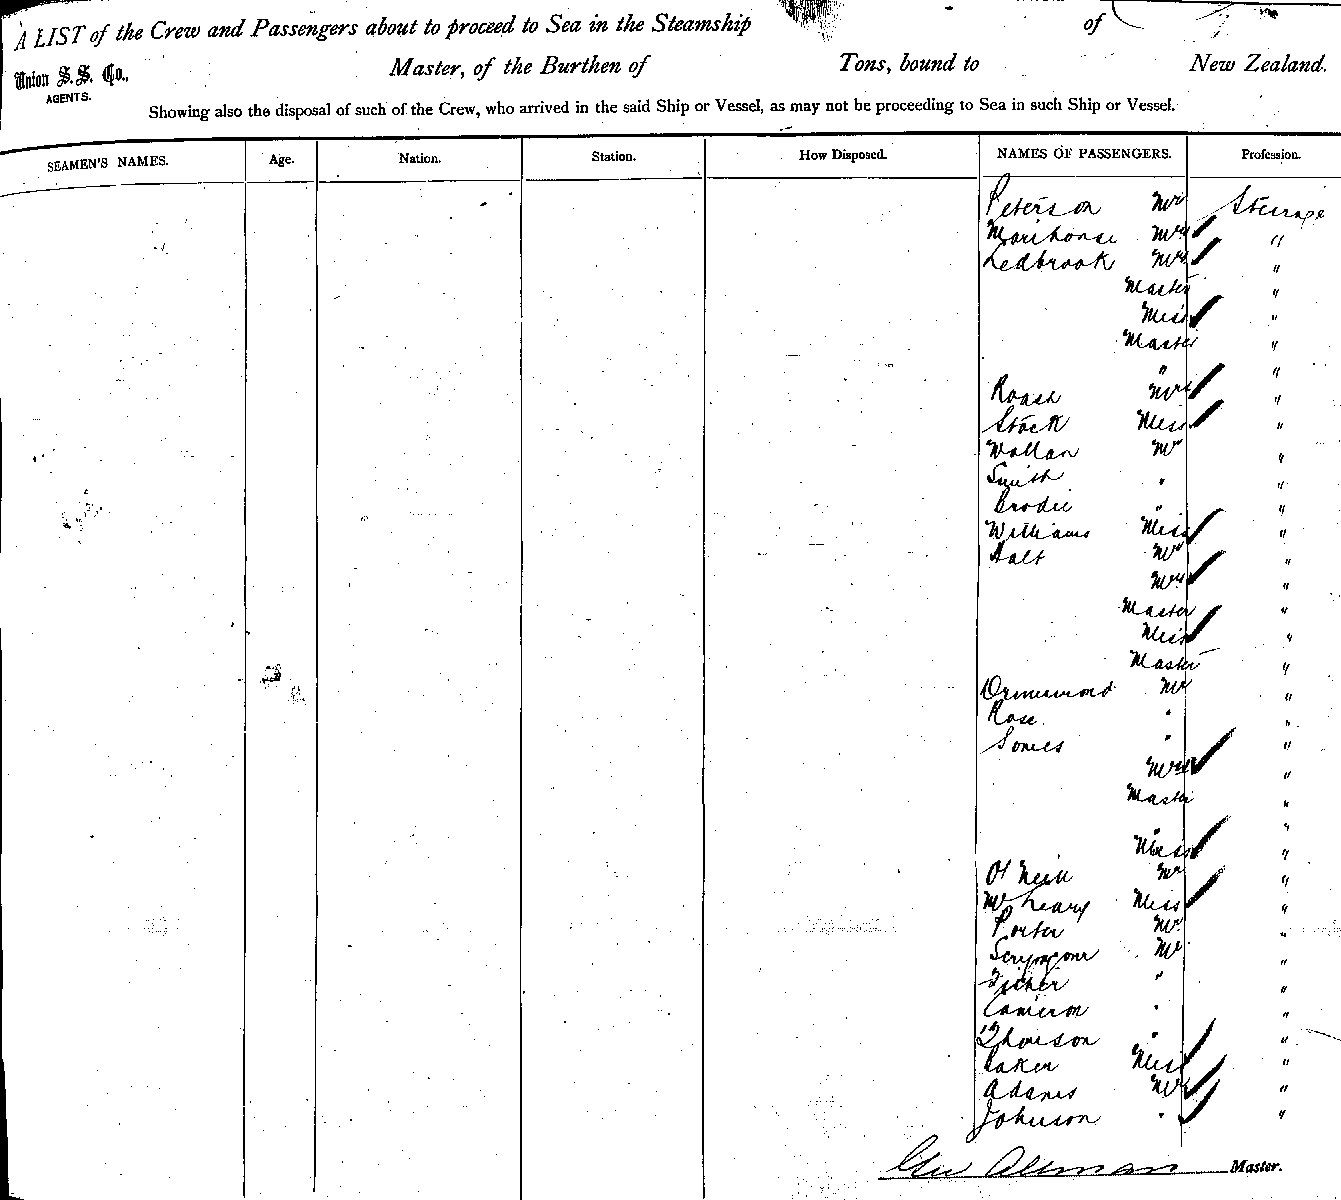 A LIST of the Crew and Passengers about to proceed to Sea in the Steamship of
Union S.S. Co., Master, of the Burthen of Tons, bound to New Zealand.
AGENTS.
Showing also the disposal of such of the Crew, who arrived in the said Ship or Vessel, as may not be proceeding to Sea in such Ship or Vessel.
SEAMEN'S NAMES. Age. Nation. Station. How Disposed. NAMES OF PASSENGERS. Profession.
Peterson Mr Steerage
Morehouse Mrs "
Ledbrook Mrs "
Master "
Miss "
Master "
" "
Roash Mrs "
Stock Miss "
Wallan Mr "
Smith " "
Brodie " "
Williams Miss "
Halt Mr "
Mrs "
Master "
Miss "
Master "
Mr "
Rose " "
Somes " "
Mrs "
Master "
" "
Miss "
O'Neill Mr "
McLeary Miss "
Porter Mr "
Scrymgour Mr "
Fisher " "
Cameron " "
Thomson " "
Baker Miss "
Adams Mrs "
Johnson " "
Master.